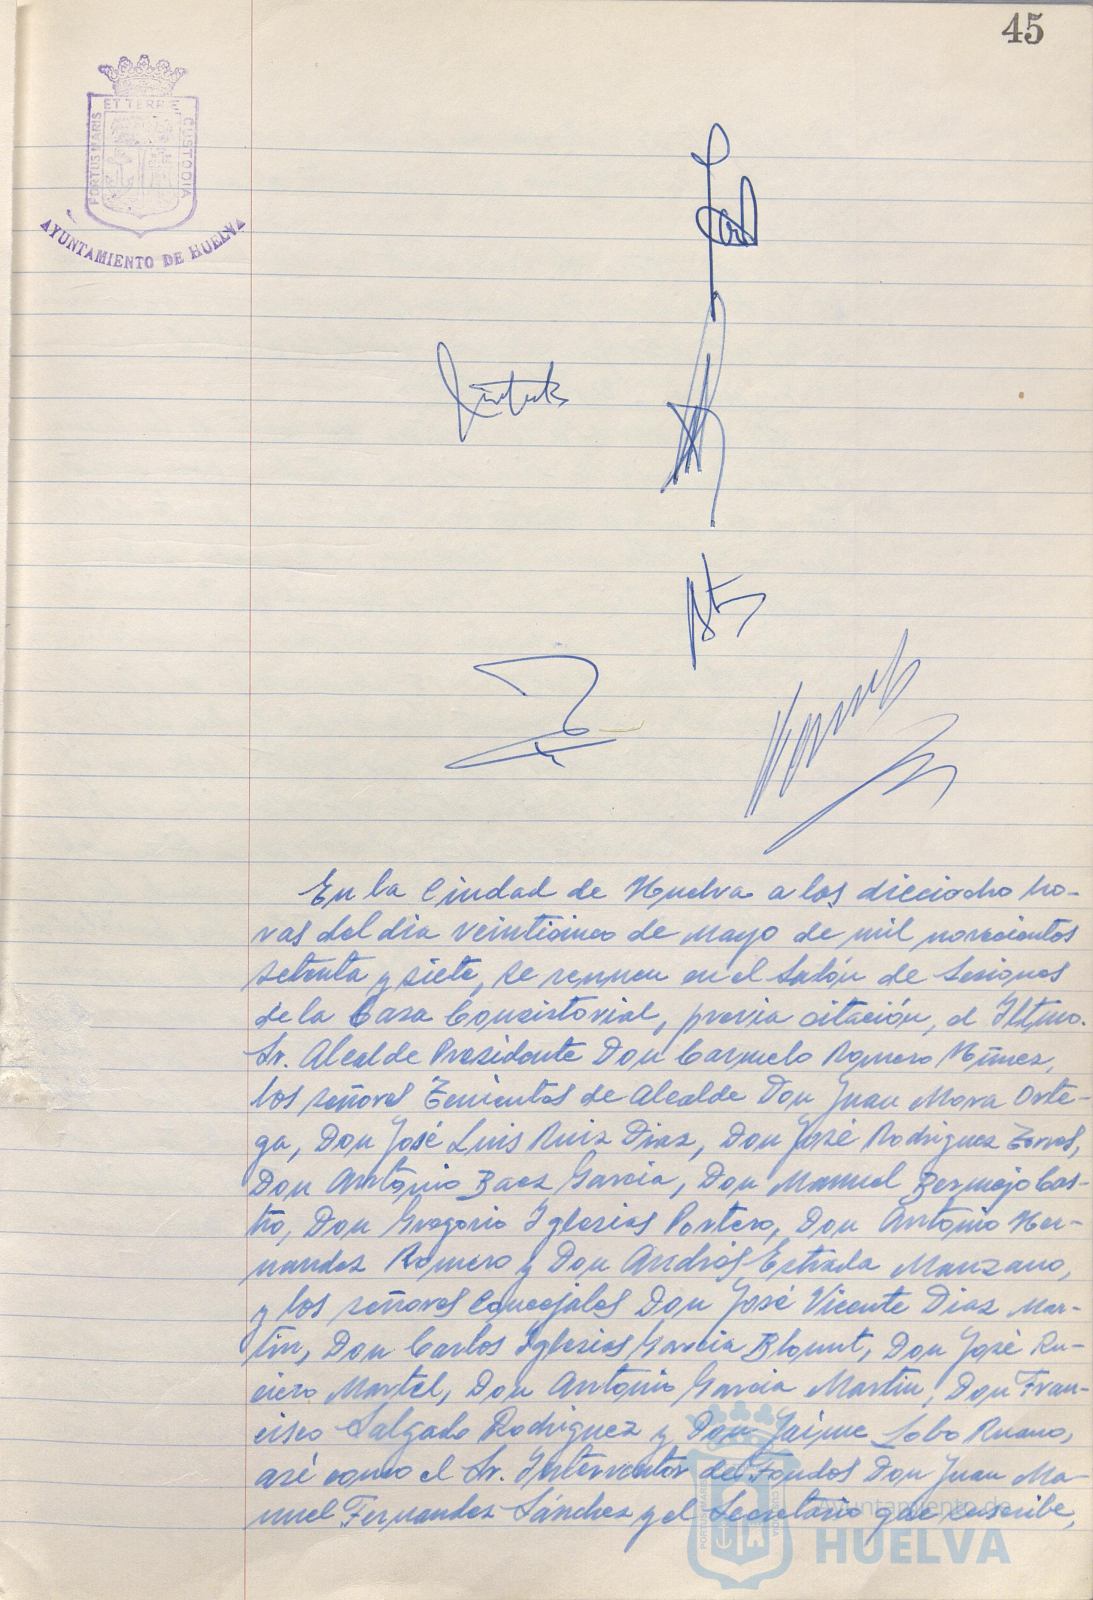 45
ET TERRÆ
PORTUS MARIS
CUSTODIA
AYUNTAMIENTO DE HUELVA
En la Ciudad de Huelva a los dieciocho ho-
ras del dia veinticinco de Mayo de mil novecientos
setenta y siete, se reunen en el Salón de Sesiones
de la Casa Consistorial, previa citación, el Iltmo.
Sr. Alcalde Presidente Don Carmelo Romero Núñez,
los señores Tenientes de Alcalde Don Juan Mora Orte-
ga, Don José Luis Ruiz Diaz, Don José Rodriguez Torres,
Don Antonio Baez Garcia, Don Manuel Bermejo Cas-
tro, Don Gregorio Iglesias Portero, Don Antonio Her-
nandez Romero y Don Andrés Estrada Manzano,
y los señores Concejales Don José Vicente Diaz Mar-
tin, Don Carlos Iglesias Garcia Blount, Don José Ru-
ciero Martel, Don Antonio Garcia Martin, Don Fran-
cisco Salgado Rodriguez y Don Jaime Lobo Ruano,
asi como el Sr. Interventor de Fondos Don Juan Ma-
nuel Fernandez Sánchez y el Secretario que suscribe,
Ayuntamiento de
HUELVA